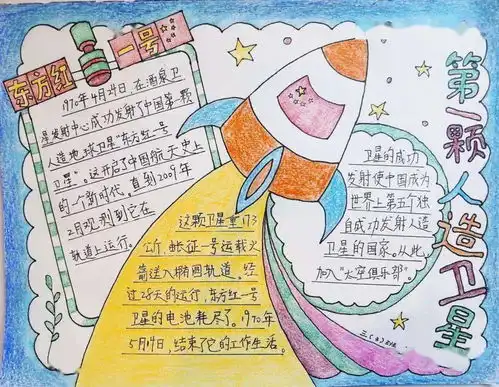 东方红一号
1970年4月24日，在酒泉卫
星发射中心成功发射了中国第一颗
人造地球卫星"东方红一号
卫星"。这开启了中国航天史上
的一个新时代，直到2009年
2月观测到它在
轨道上运行。
这颗卫星重173
公斤，由长征一号运载火
箭送入椭圆轨道。经
过28天的运行，东方红一号
卫星的电池耗尽了。1970年
5月14日，结束了它的工作生活。
卫星的成功
发射使中国成为
世界上第五个独
自成功发射人造
卫星的国家。从此，
加入"太空俱乐部"。
第一颗人造卫星